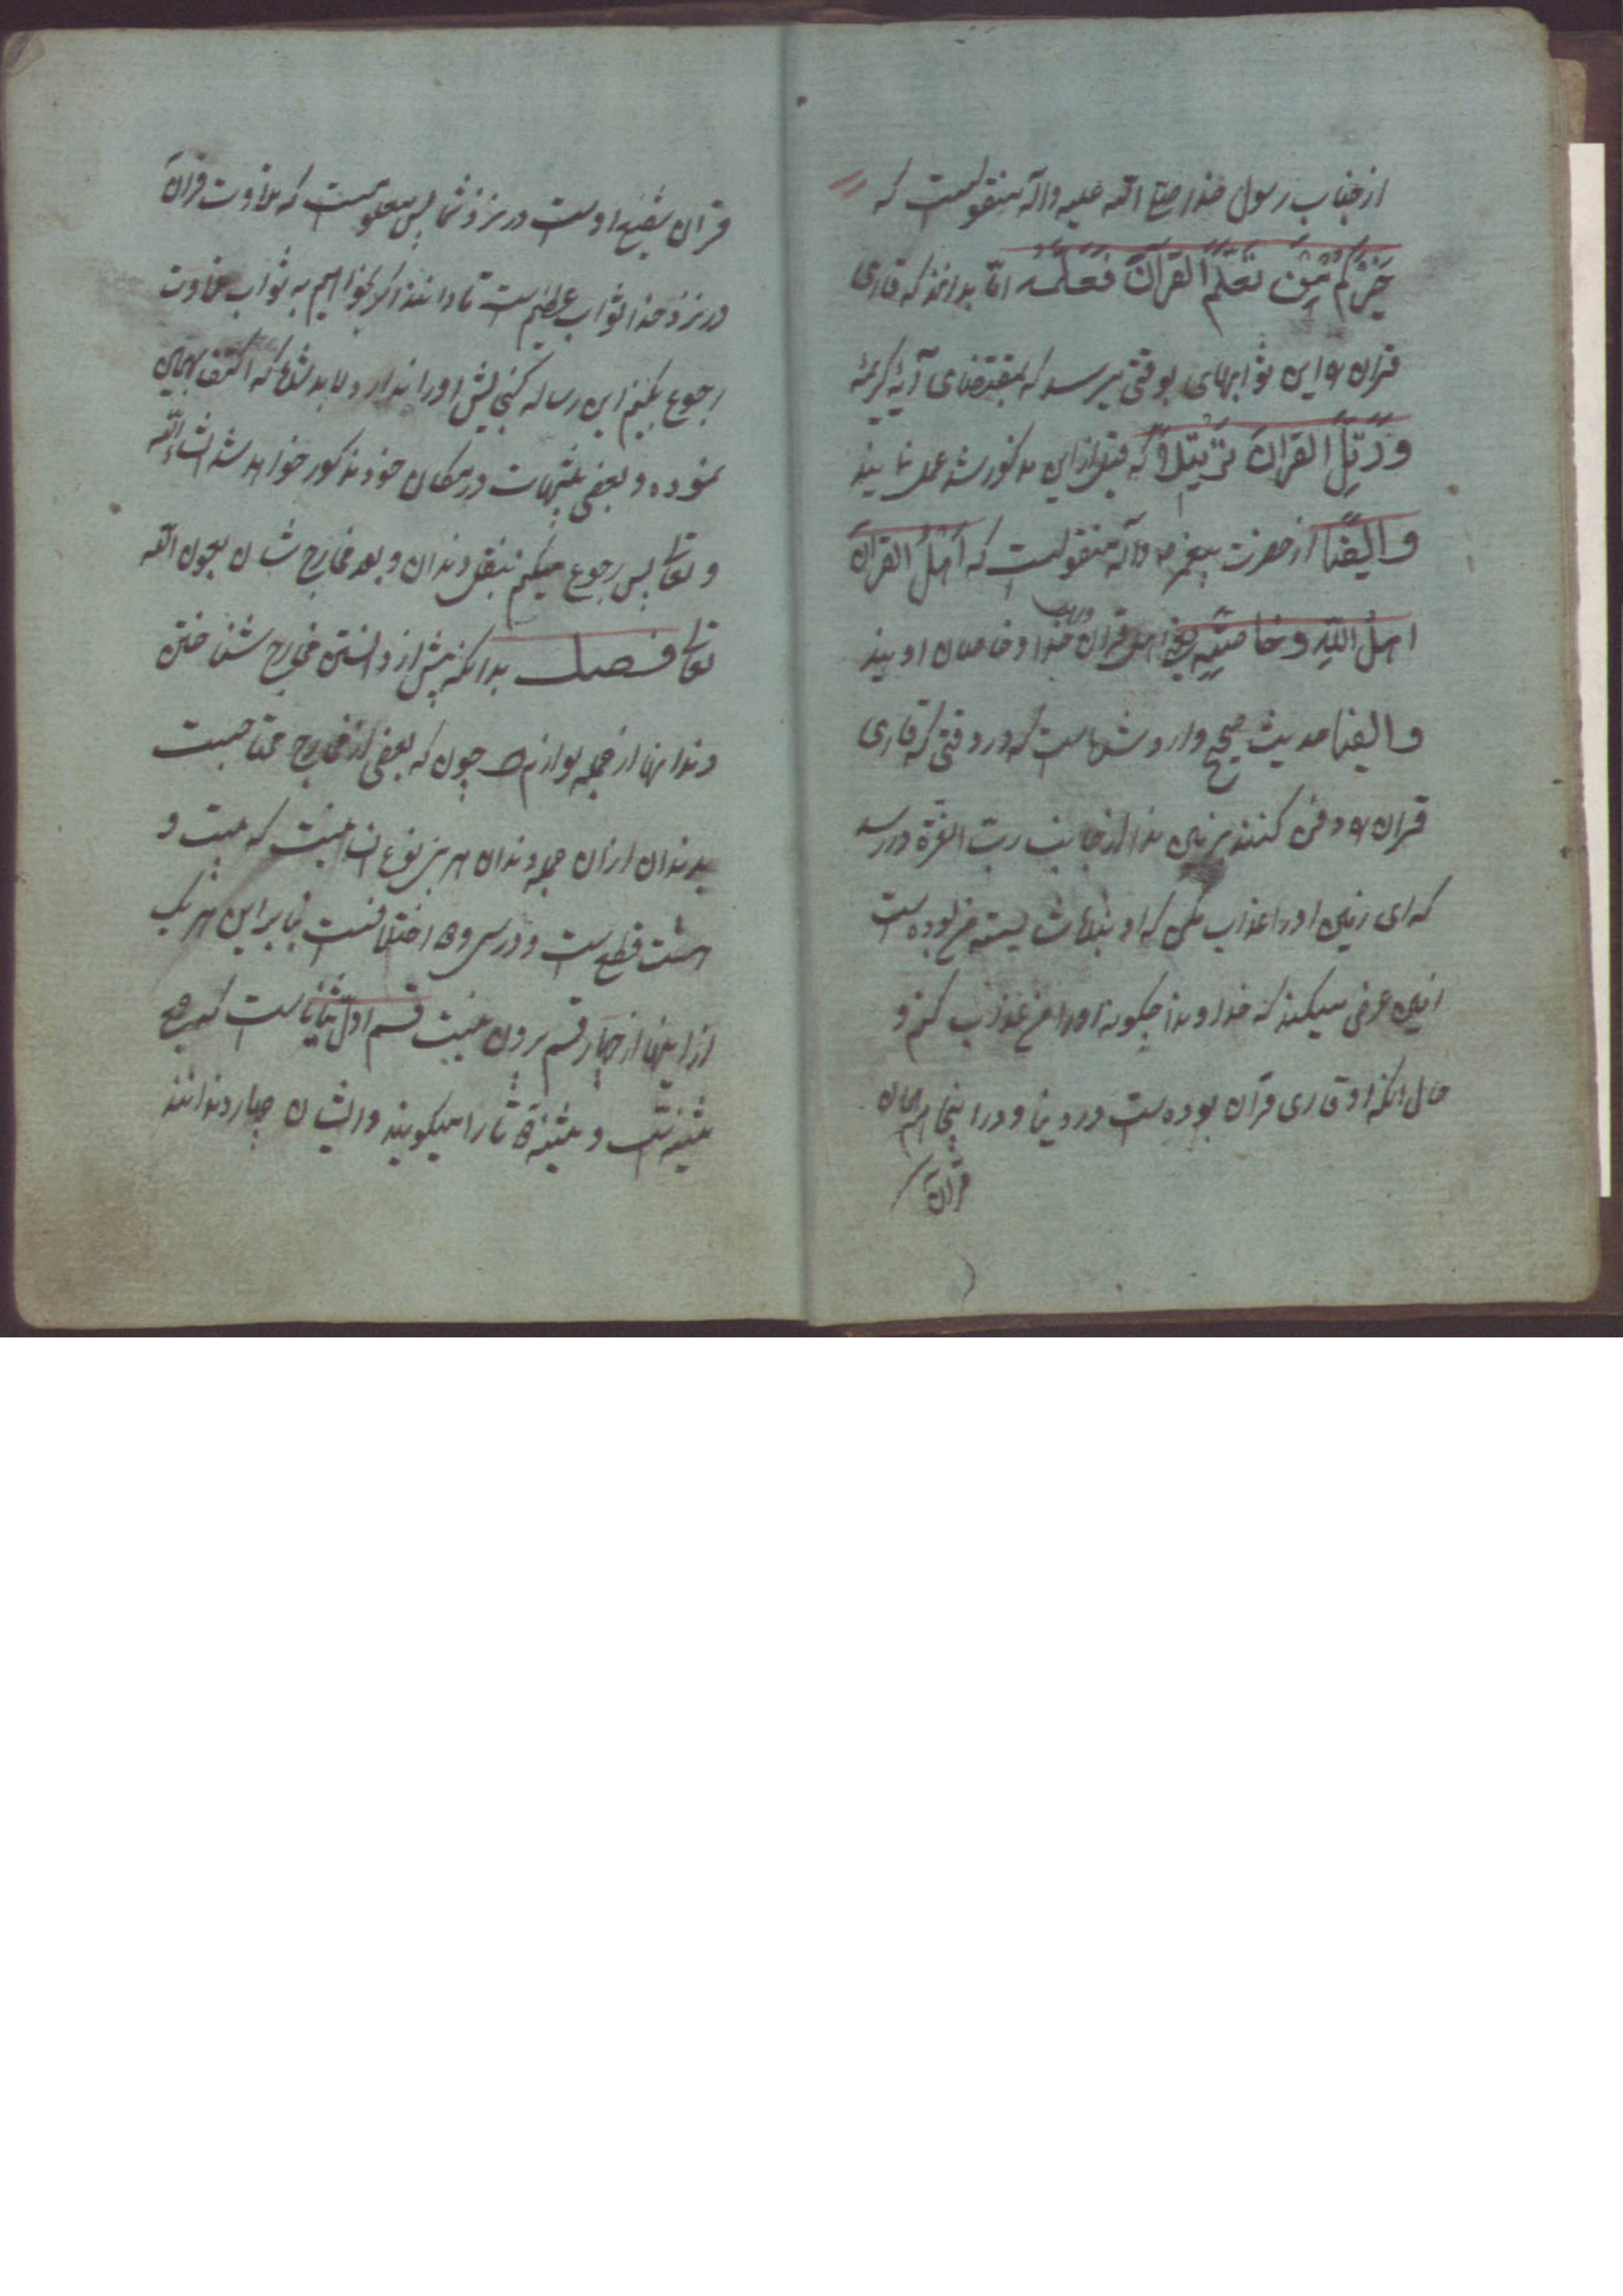 از جناب رسول خدا صلی الله علیه و اله منقولست که
خَیْرُکُم مَّن تَعَلَّمَ القرآنَ فعلّمه امّا بدانند که قاری
قران را این ثوابهای بوقتی میرسد که بمقتضای آیهٔ کریمهٔ
وَرَتِّلِ القرانَ تَرْتِیلاً که قبل ازاین مذکور شد عمل نمایند
و ایضًا از حضرت پیغمبر ص واله منقولست که اَهلُ القرآن
اهلُ اللّهِ و خاصّته یعنی اهل قران خدا و خاصان اویند
و ایضا حدیث صحیح وارد شده است که در وقتی که قاری
قران را دفن کنند بزمین ندا از جانب ربّ العزّة در رسد
که ای زمین او را عذاب مکن که او بنده شایسته من بوده است
زمین عرض میکند که خداوندا چگونه او را من عذاب کنم و
حال انکه او قاری قرآن بوده است در دنیا و در اینجا هم همان
قرآن
قران شفیع اوست در نزد شما پس معلومست که تلاوت قرآن
در نزد خدا ثواب عظیم است تا دانند اگر بخواهیم به ثواب تلاوت
رجوع بکنیم این رساله گنجایش او را ندارد و لابد شده که اکتفا بهمین
نموده و بعضی در مکان خود مذکور خواهد شد انشاءالله
و تعالی پس رجوع میکنیم بنقل دندان و بعد مخارج شان بعون الله
تعالی فصل بدانکه پیش از دانستن مخارج شناختن
دندانها از جمله لوازمه چون که بعضی از مخارج محتاجست
بدندان ازان جمله دندان هر بنی نوع انسانیست که بیست و
هشت قطع است و در سی و دو اختلافست بنابراین هر یک
از اینها از چهار قسم برون نیست قسم اول ثنایاست که جمع
ثنیه است و ثنیه را میگویند و ایشان چهار دندانند